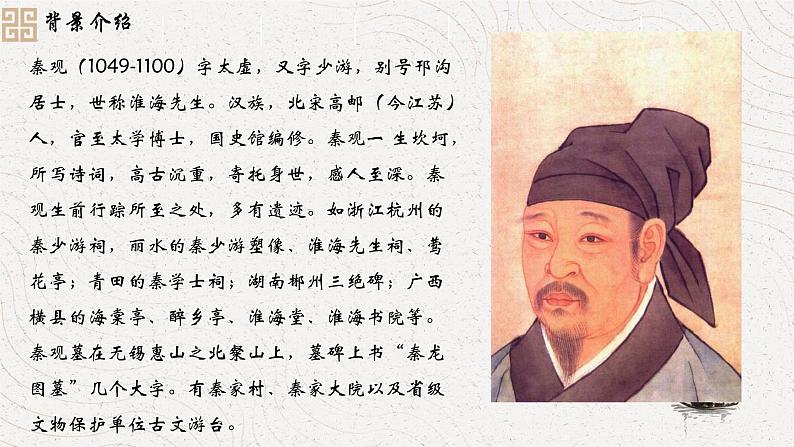 背景介绍
秦观（1049-1100）字太虚，又字少游，别号邗沟
居士，世称淮海先生。汉族，北宋高邮（今江苏）
人，官至太学博士，国史馆编修。秦观一 生坎坷，
所写诗词，高古沉重，寄托身世，感人至深。秦
观生前行踪所至之处，多有遗迹。如浙江杭州的
秦少游祠，丽水的秦少游塑像、淮海先生祠、莺
花亭；青田的秦学士祠；湖南郴州三绝碑；广西
横县的海棠亭、醉乡亭、淮海堂、淮海书院等。
秦观墓在无锡惠山之北粲山上，墓碑上书“秦龙
图墓”几个大字。有秦家村、秦家大院以及省级
文物保护单位古文游台。